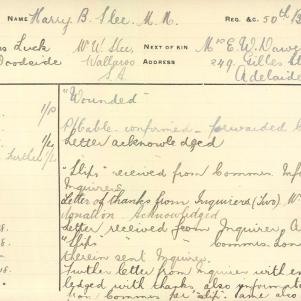 NAME Harry B. Slee. M.M. REG. &C. 50th B
Luck Mr W. Slee, NEXT OF KIN Mrs E. W. Daws
Woodside Wallaroo ADDRESS 249. Gilles St
S.A Adelaide
"Wounded"
confirmed - forwarded
Letter acknowledged
"Slip" received from Commes. Inf
Inquirers
Letter of thanks from Inquirers (Two) W
donation Acknowledged
Letter received from Inquirer A
"Slip" " " Commes. Lon
therein sent Inquirer.
Further letter from Inquirer with en
ledged with thanks, also informat
from Commes per "slip"